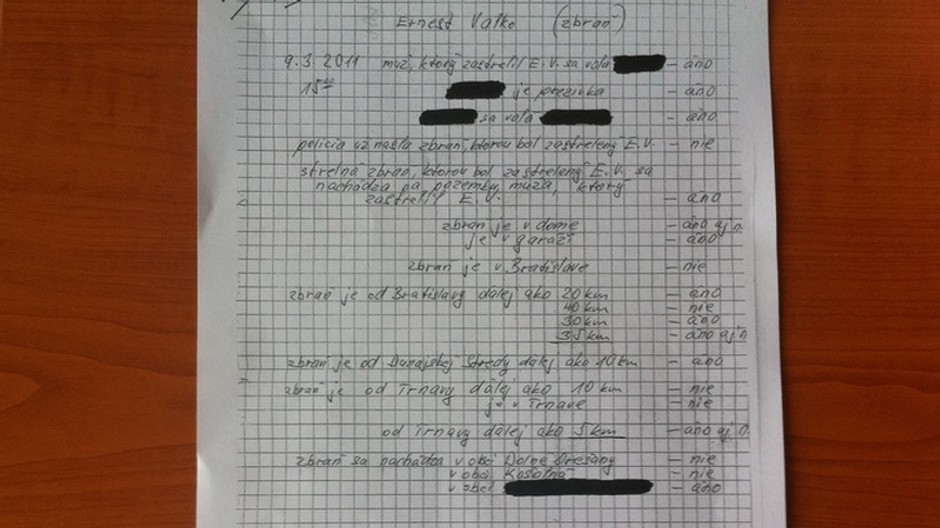 Ernest Valko (zbraň)
9.3.2011 muž, ktorý zastrelil E.V. sa volá - áno
15⁰⁰ je prezívka - áno
sa volá - áno
polícia už našla zbraň, ktorou bol zastrelený E.V. - nie
strelná zbraň, ktorou bol zastrelený E.V. sa
nachádza na pozemku muža, ktorý
zastrelil E.V. - áno
zbraň je v dome - áno aj n.
je v garáži - áno
zbraň je v Bratislave - nie
zbraň je od Bratislavy ďalej ako 20 km - áno
40 km - nie
30 km - áno
35 km - áno aj n
zbraň je od Dunajskej Stredy ďalej ako 10 km - áno
zbraň je od Trnavy ďalej ako 10 km - nie
je v Trnave - nie
od Trnavy ďalej ako 5 km - áno aj n.
zbraň sa nachádza v obci Dolné Orešany - nie
v obci Košolná - nie
v obci - áno